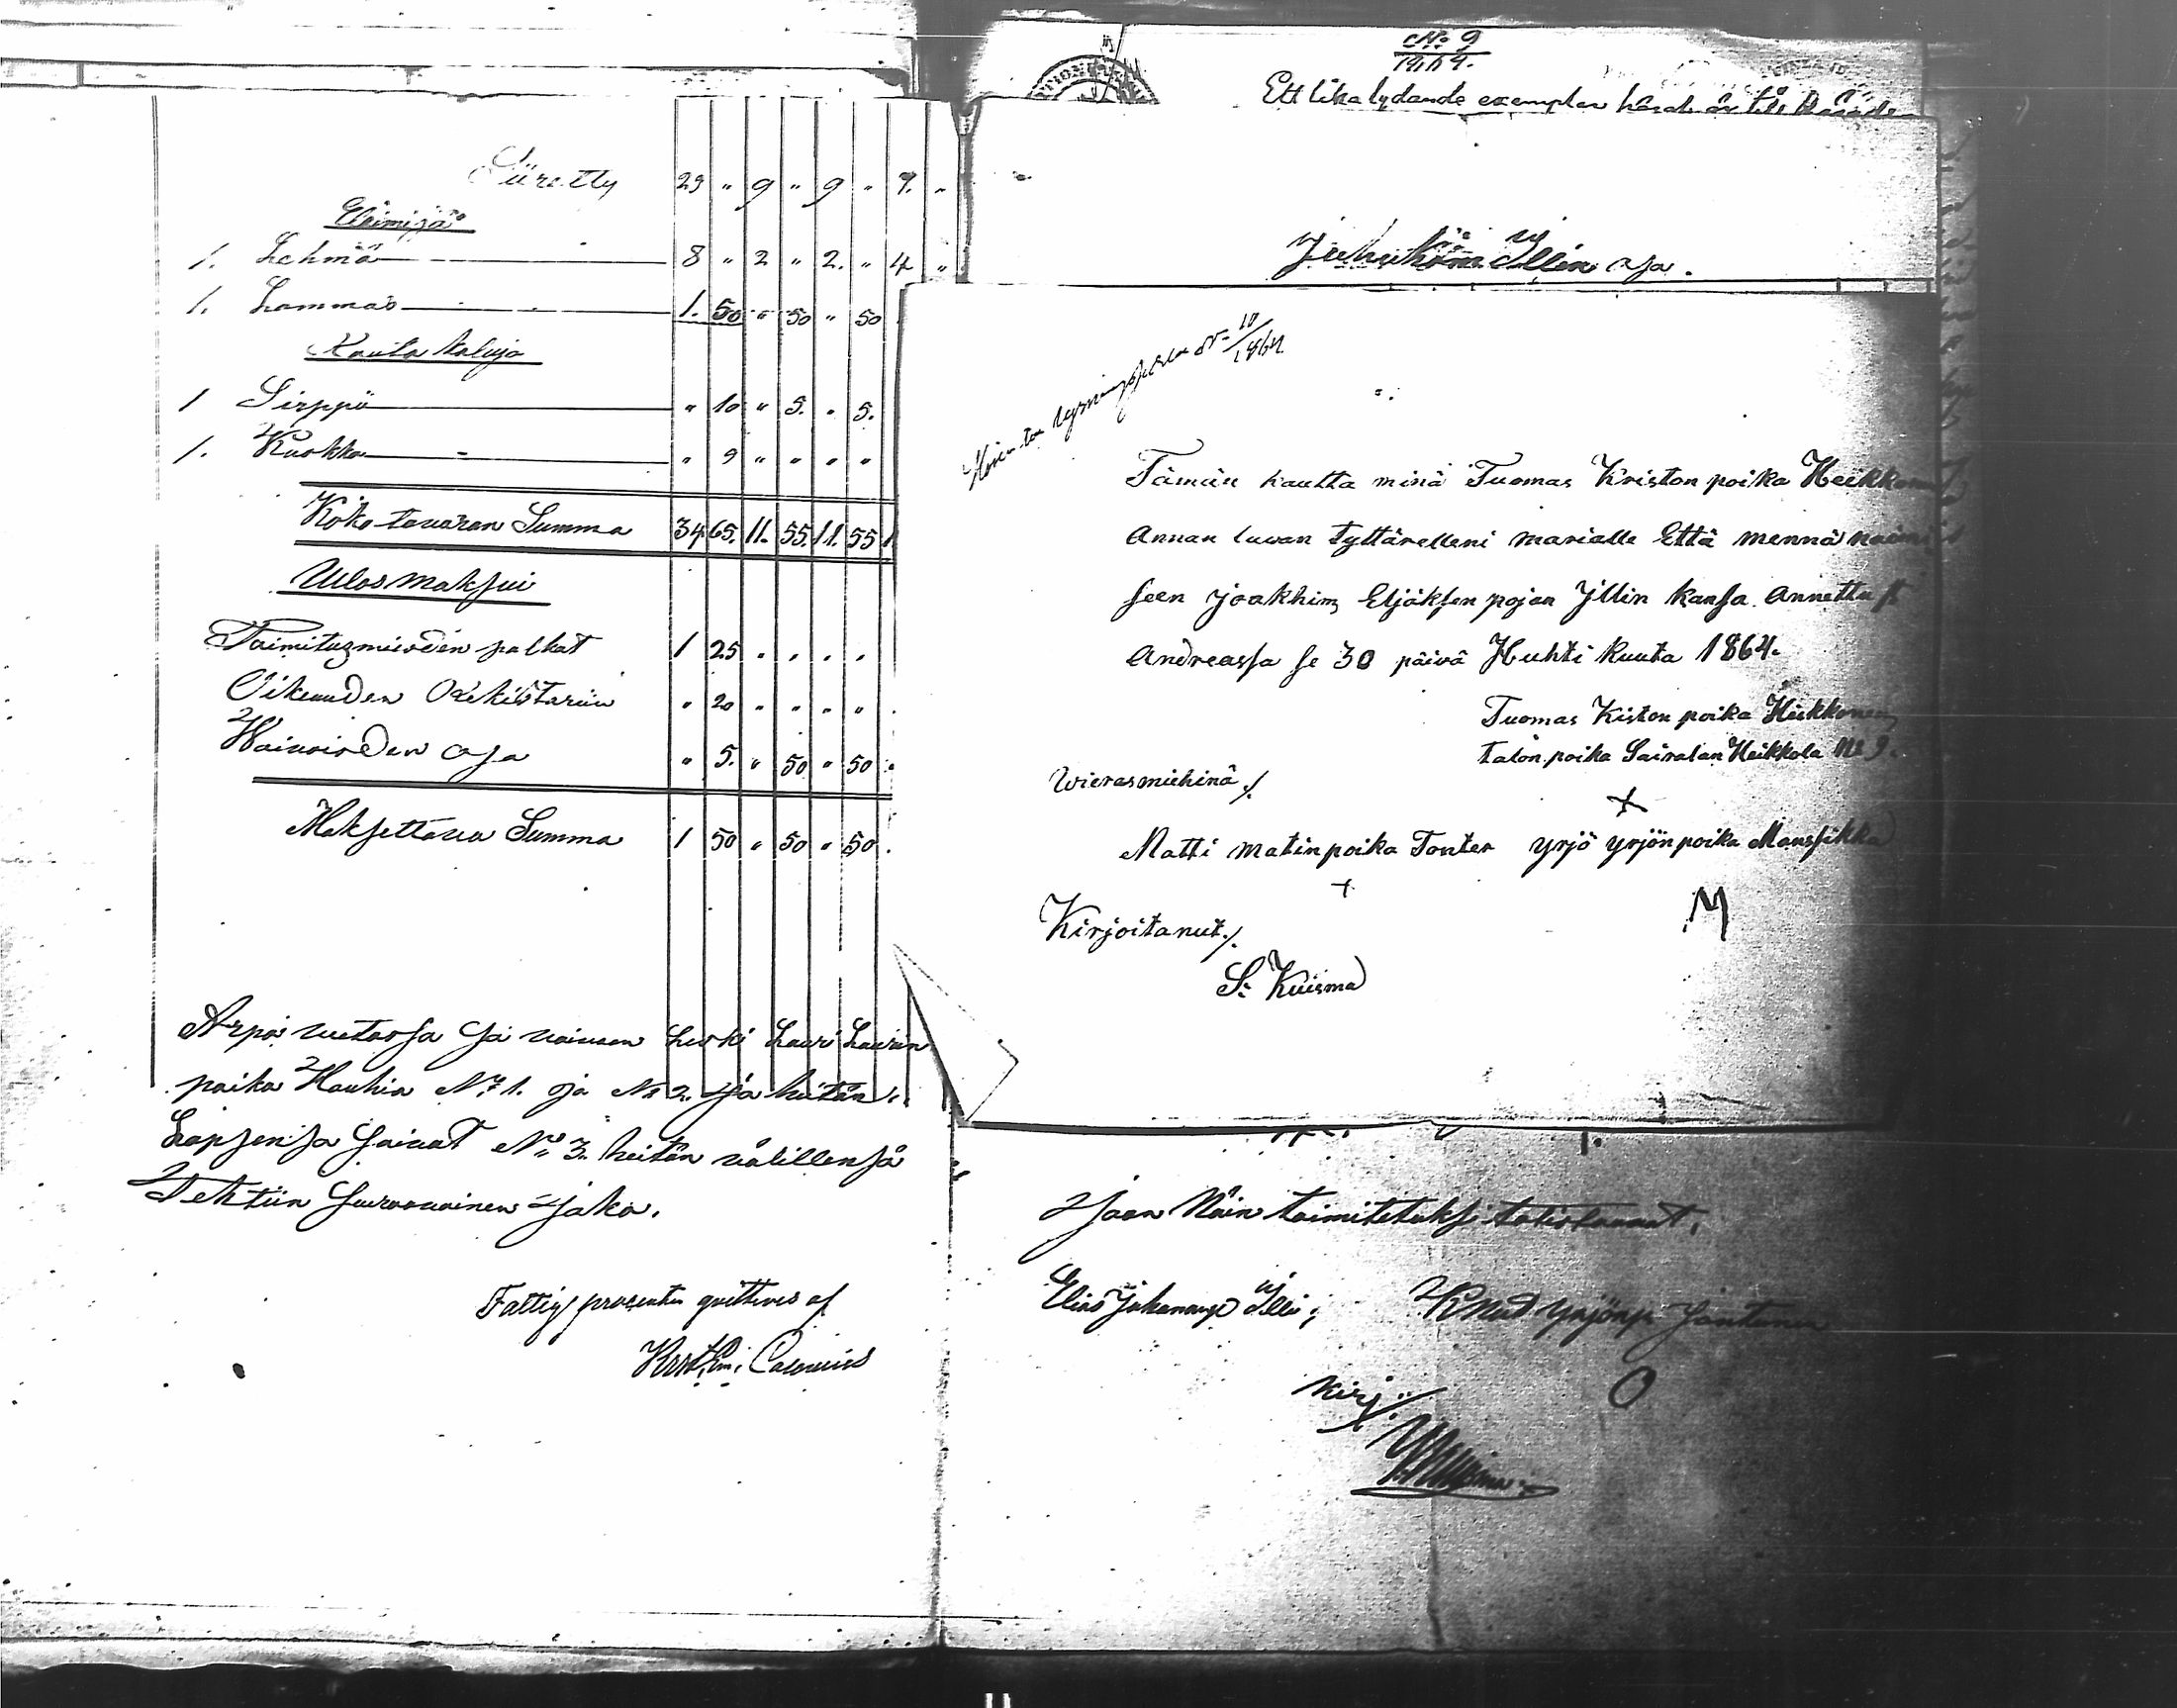 Siiretty 29 " 9 " 9 " 9. "
Eläimijä
1. Lehmä 8 " 2 " 2. " 4 "
1. Lammas 1. 50 " 50 " 50
Rauta kaluja
1 Sirppü " 10 " 5. " 5.
1. Kuokka " 9 " " " "
Koko tavaran Summa 34 65. 11. 55. 11. 55
Ulos maksui
Toimitusmiesden palkat 1 25 " " " "
Oikeuden Rekisteriin " 20 " " " "
Waivaisden osa " 5. " 50 " 50
Maksettava Summa 1 50 " 50 " 50
Arpa vetossa sai vaimon Leski Lauri Laurin
poika Hauhia No 1. ja No 2. ja heitän
Lapsensa saivat No 3. heitän välillensä
Tehtiin suruvainen jako.
Fattig procenten qvitteras af
Calonius
No 9
1864.
Ett lika lydande exemplar
Illin osa.
lysningssedeln No 10/1864.
Tämän kautta minä Tuomas Kriston poika Heikkonen
Annan luvan Tyttärelleni Marialle Että mennä naimi
seen Joakhim Eljaksen pojan Jllin kansa. Annettu St
Andreassa se 30 päivä Huhti Kuuta 1864.
Tuomas Kiston poika Heikkonen
talon poika Sairalan Heikkola No 9.
Wierasmiehinä /.
+
Matti Matinpoika Tonter Yrjö Yrjönpoika Mansikka
+
M
Kirjoitanut /.
S: Kuisma
Jaon Näin toimitetuksi totistavat.
Elias Juhananp Illi; Knud Yrjönp Jantunen
O
Kirj. /.